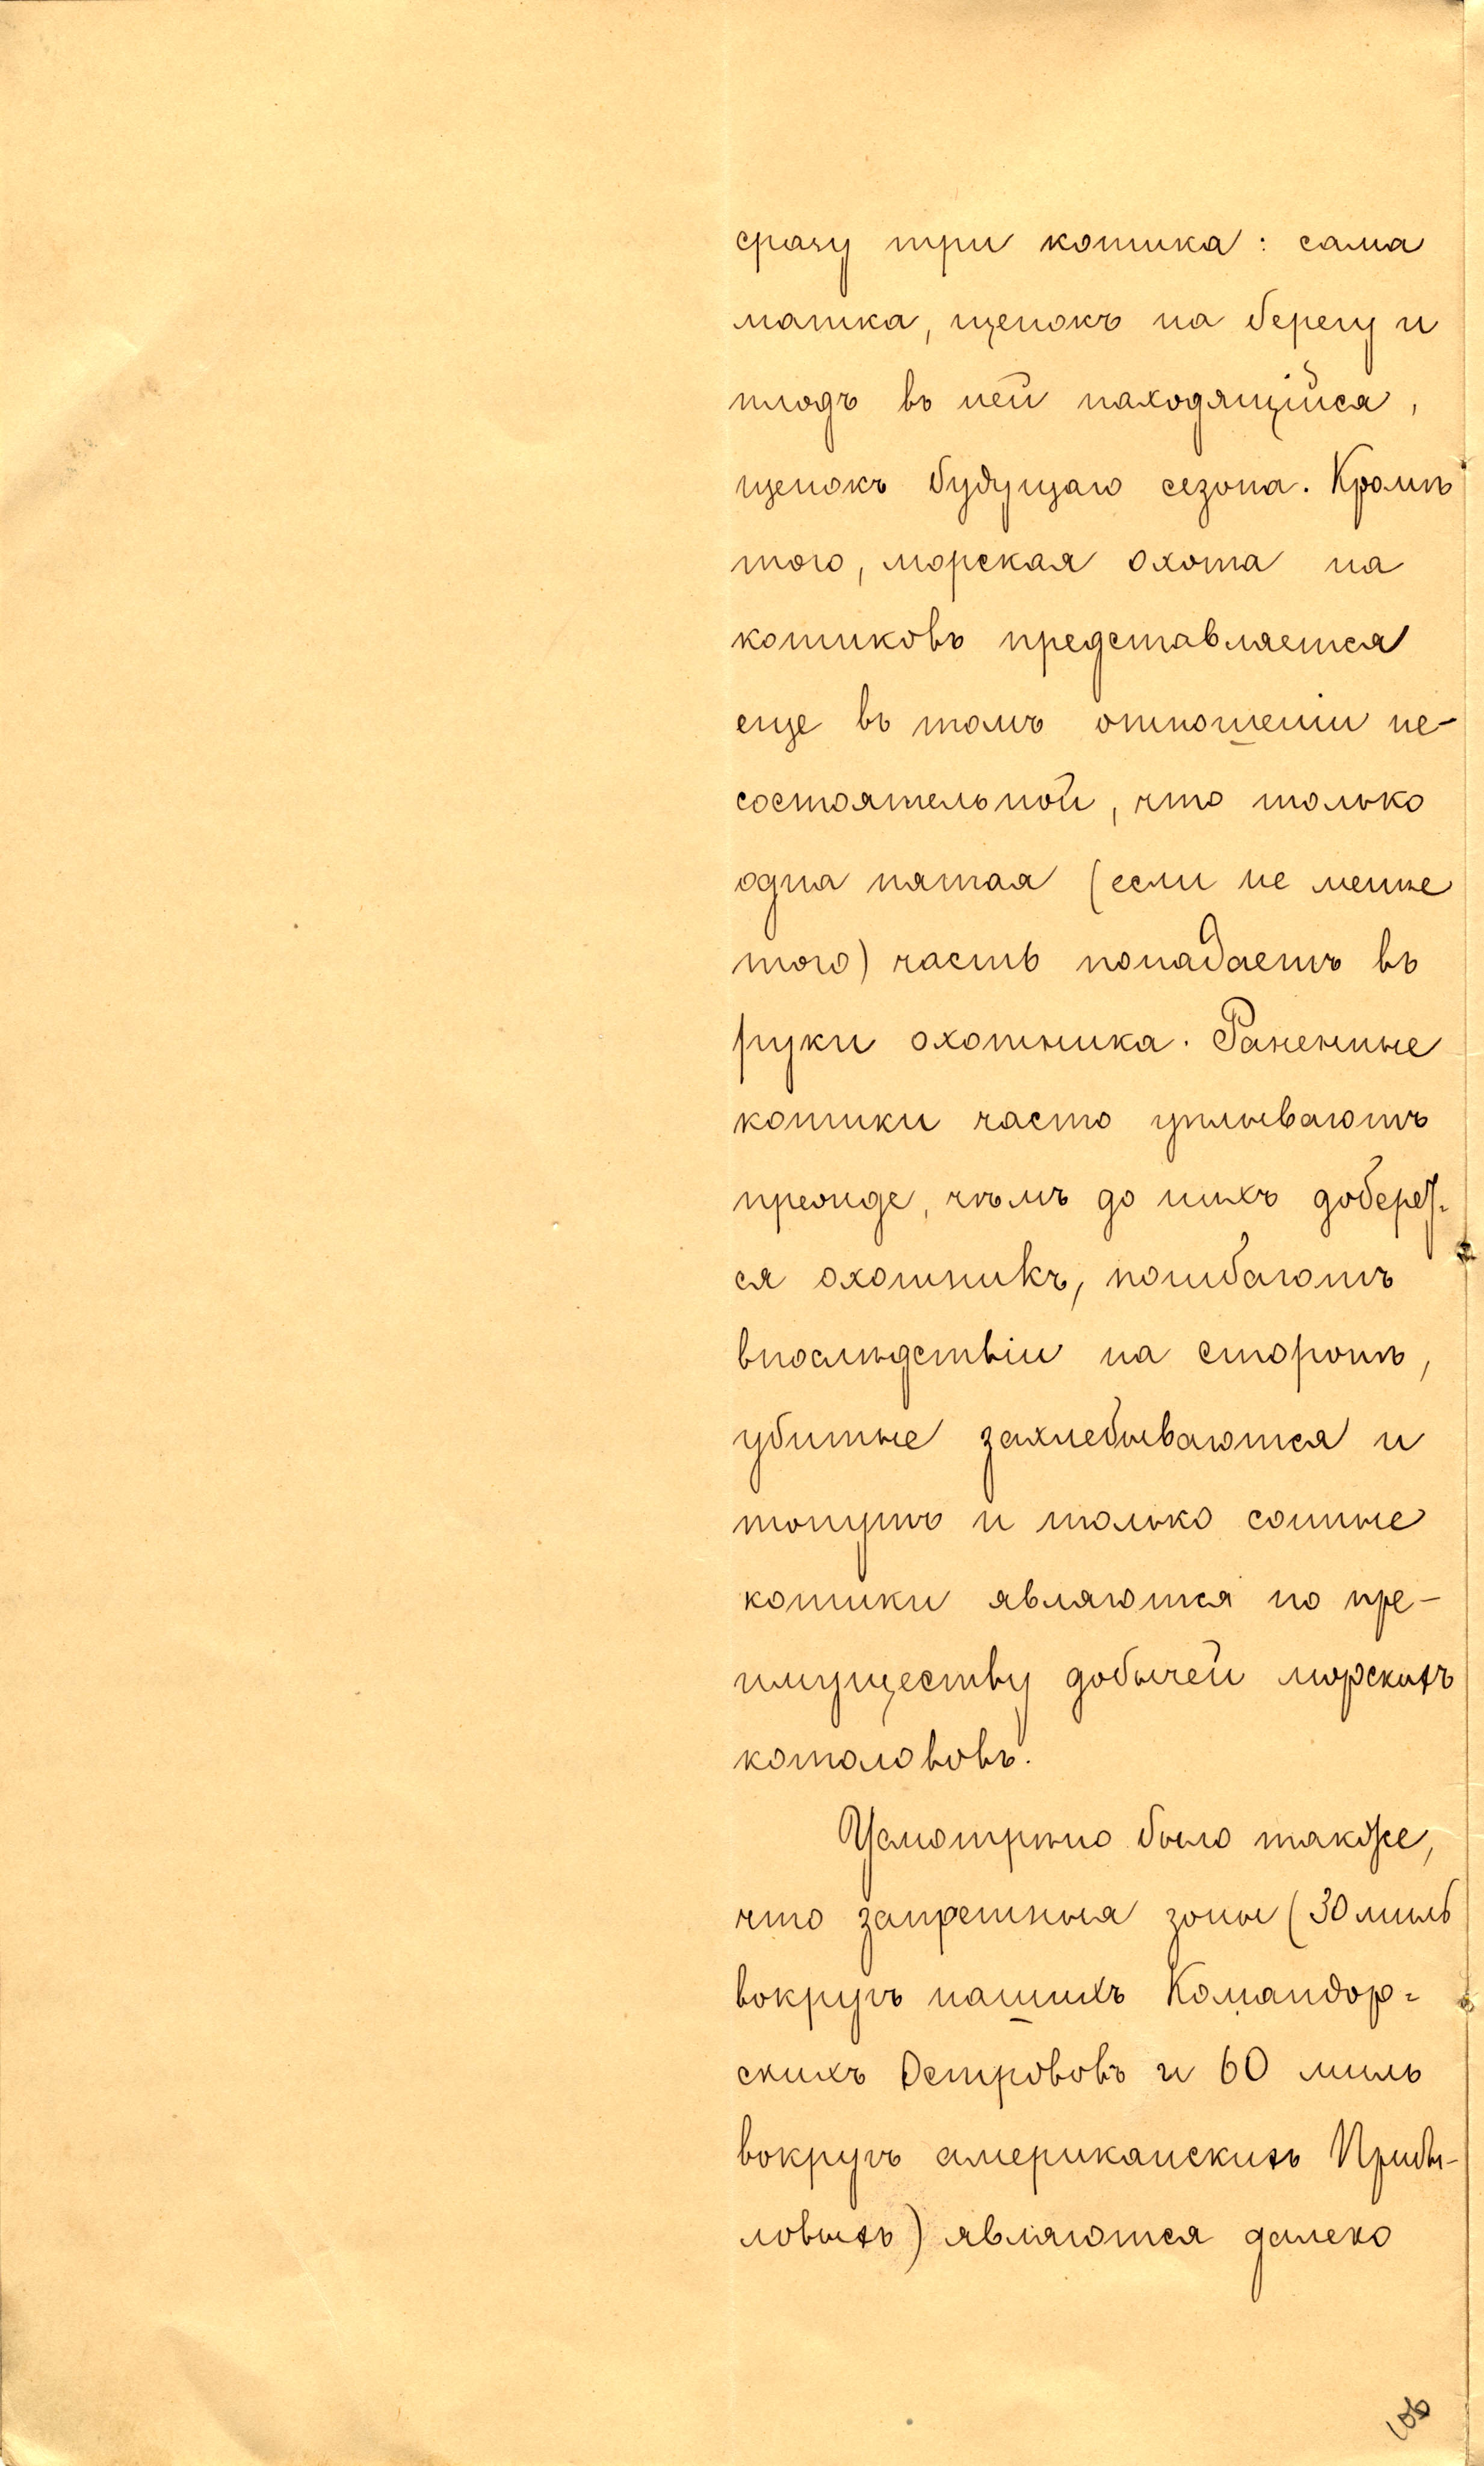 сразу три котика: сама
матка, щенокъ на берегу и
плодъ въ ней находящійся,
щенокъ будущаго сезона. Кромѣ
того, морская охота на
котиковъ представляется
еще въ томъ отношеніи не-
состоятельной, что только
одна пятая (если не менѣе
того) часть попадаетъ въ
руки охотника. Раненные
котики часто уплываютъ
прежде, чѣмъ до нихъ доберет-
ся охотникъ, погибаютъ
впослѣдствіи на сторонѣ,
убитые захлебываются и
тонутъ и только сонные
котики являются по пре-
имуществу добычей морскихъ
котолововъ.
Усмотрѣно было также,
что запретныя зоны (30 миль
вокругъ нашихъ Командор-
скихъ Острововъ и 60 миль
вокругъ американскихъ Прибы-
ловыхъ) являются далеко